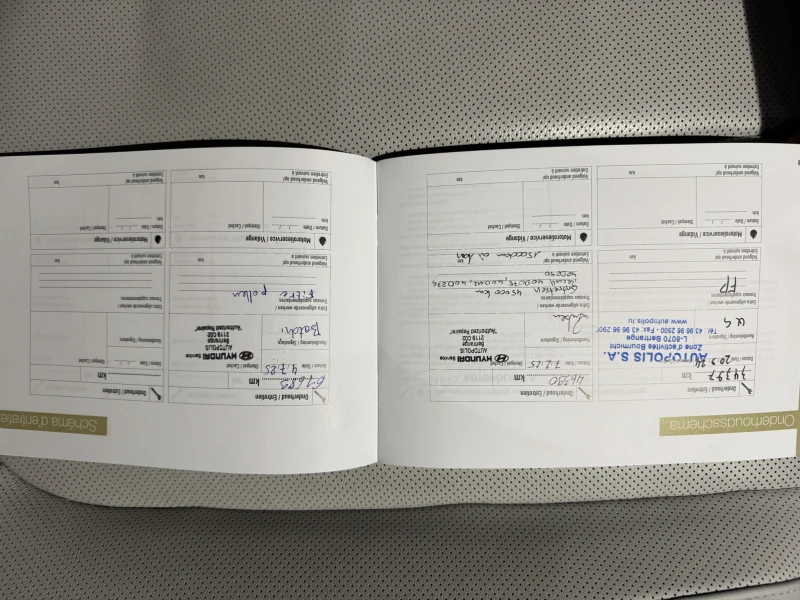 Onderhoudsschema
Onderhoud / Entretien
km
Datum / Date
20.9.24
AUTOPOLIS S.A.
Zone d'activités Bourmicht
L-8070 Bertrange
Tél. 43 96 96 2500 - Fax: 43 96 96 290
www.autopolis.lu
Handtekening / Signature
Extra uitgevoerde werken /
Travaux supplémentaires
FP
Volgend onderhoud op/
Entretien suivant à
km
Motorolieservice / Vidange
Datum / Date
Stempel / Cachet
km
Volgend onderhoud op/
Entretien suivant à
km
Onderhoud / Entretien
km
Datum / Date
7.2.25
Stempel / Cachet
HYUNDAI Service
AUTOPOLIS
Bertrange
2119 C02
"Authorized Repairer"
Handtekening / Signature
Extra uitgevoerde werken /
Travaux supplémentaires
entretien 45000 km
Volgend onderhoud op/
Entretien suivant à
km
Motorolieservice / Vidange
Datum / Date
Stempel / Cachet
km
Volgend onderhoud op/
Entretien suivant à
km
Schéma d'entretien
Onderhoud / Entretien
km
Datum / Date
4.7.25
Stempel / Cachet
HYUNDAI Service
AUTOPOLIS
Bertrange
2119 C02
"Authorized Repairer"
Handtekening / Signature
Extra uitgevoerde werken /
Travaux supplémentaires
Filtre pollen
Volgend onderhoud op/
Entretien suivant à
km
Motorolieservice / Vidange
Datum / Date
Stempel / Cachet
km
Volgend onderhoud op/
Entretien suivant à
km
Onderhoud / Entretien
km
Datum / Date
Stempel / Cachet
Handtekening / Signature
Extra uitgevoerde werken /
Travaux supplémentaires
Volgend onderhoud op/
Entretien suivant à
km
Motorolieservice / Vidange
Datum / Date
Stempel / Cachet
km
Volgend onderhoud op/
Entretien suivant à
km